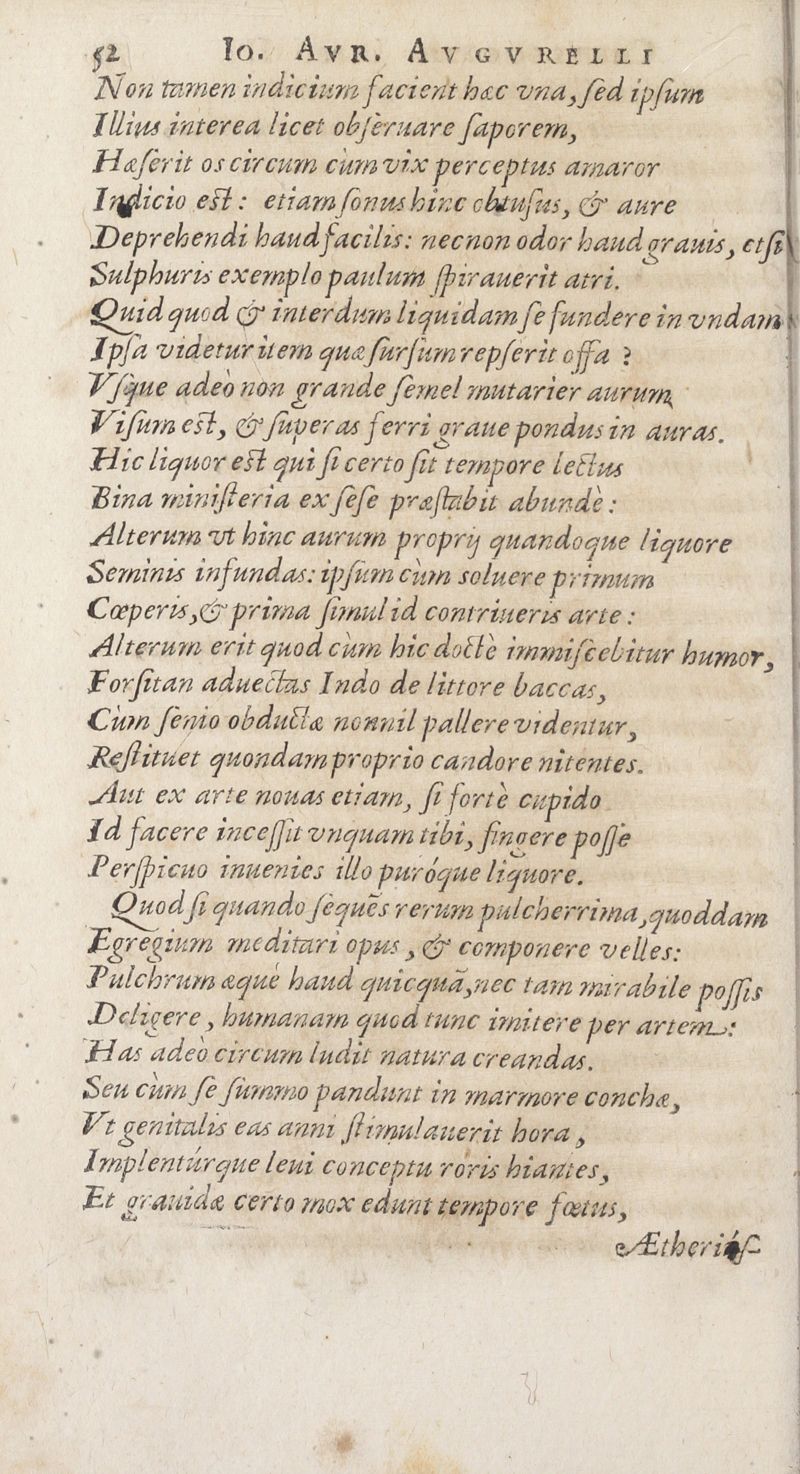 52 Io. Avr. Avgvrelli
Non tamen indicium facient hæc vna, ſed ipſum
Illius interea licet obſeruare ſaporem,
Hæſerit os circum cùm vix perceptus amaror
Indicio eſt: etiam ſonus hinc obtuſus, & aure
Deprehendi haud facilis: necnon odor haud grauis, etſi
Sulphuris exemplo paulum ſpirauerit atri.
Quid quod & interdum liquidam ſe fundere in vndam
Ipſa videtur item quæ ſurſum repſerit offa ?
Vſque adeò non grande ſemel mutarier aurum
Viſum eſt, & ſuperas ferri graue pondus in auras.
Hic liquor eſt qui ſi certo ſit tempore lectus
Bina miniſteria ex ſeſe præſtabit abundè:
Alterum vt hinc aurum proprij quandoque liquore
Seminis infundas: ipſum cùm soluere primum
Cœperis, & prima ſimul id contriueris arte:
Alterum erit quod cùm hic doctè immiſcebitur humor,
Forſitan aduectas Indo de littore baccas,
Cùm ſenio obductæ nonnil pallere videntur,
Reſtituet quondam proprio candore nitentes.
Aut ex arte nouas etiam, ſi fortè cupido
Id facere inceſſit vnquam tibi, fingere poſſe
Perſpicuo inuenies illo puróque liquore.
Quod ſi quando ſequẽs rerum pulcherrima, quoddam
Egregium meditari opus, & componere velles:
Pulchrum æquè haud quicquã, nec tam mirabile poſſis
Deligere, humanam quod tunc imitere per artem:
Has adeò circum ludit natura creandas.
Seu cùm ſe ſummo pandunt in marmore conchæ,
Vt genitalis eas anni ſtimulauerit hora,
Implentúrque leui conceptu roris hiantes,
Et grauidæ certo mox edunt tempore fœtus,
Ætheriáſ-